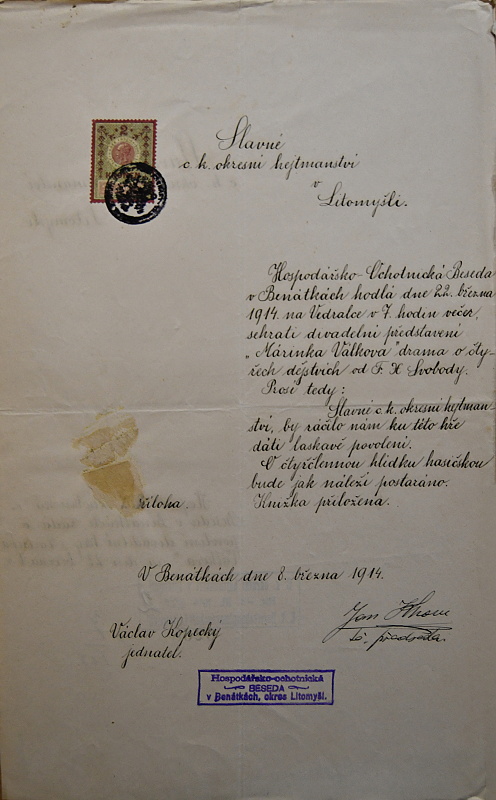 2
Slavné
c. k. okresní hejtmanství
v
Litomyšli.
Hospodářsko-Ochotnická Beseda
v Benátkách hodlá dne 22. března
1914 na Vedralce v 7. hodin večer,
sehráti divadelní představení
„Márinka Válkova" drama o čty-
řech dějstvích od F. X Svobody.
Prosí tedy:
Slavné c. k. okresní hejtman-
ství, by ráčilo nám ku této hře
dáti laskavě povolení.
O čtyřčlennou hlídku hasičskou
bude jak náleží postaráno.
Příloha. Knížka přiložena.
V Benátkách dne 8. března 1914.
Václav Kopecký
jednatel.
Jan
předseda.
Hospodářsko-ochotnická
BESEDA
v Benátkách, okres Litomyšl.